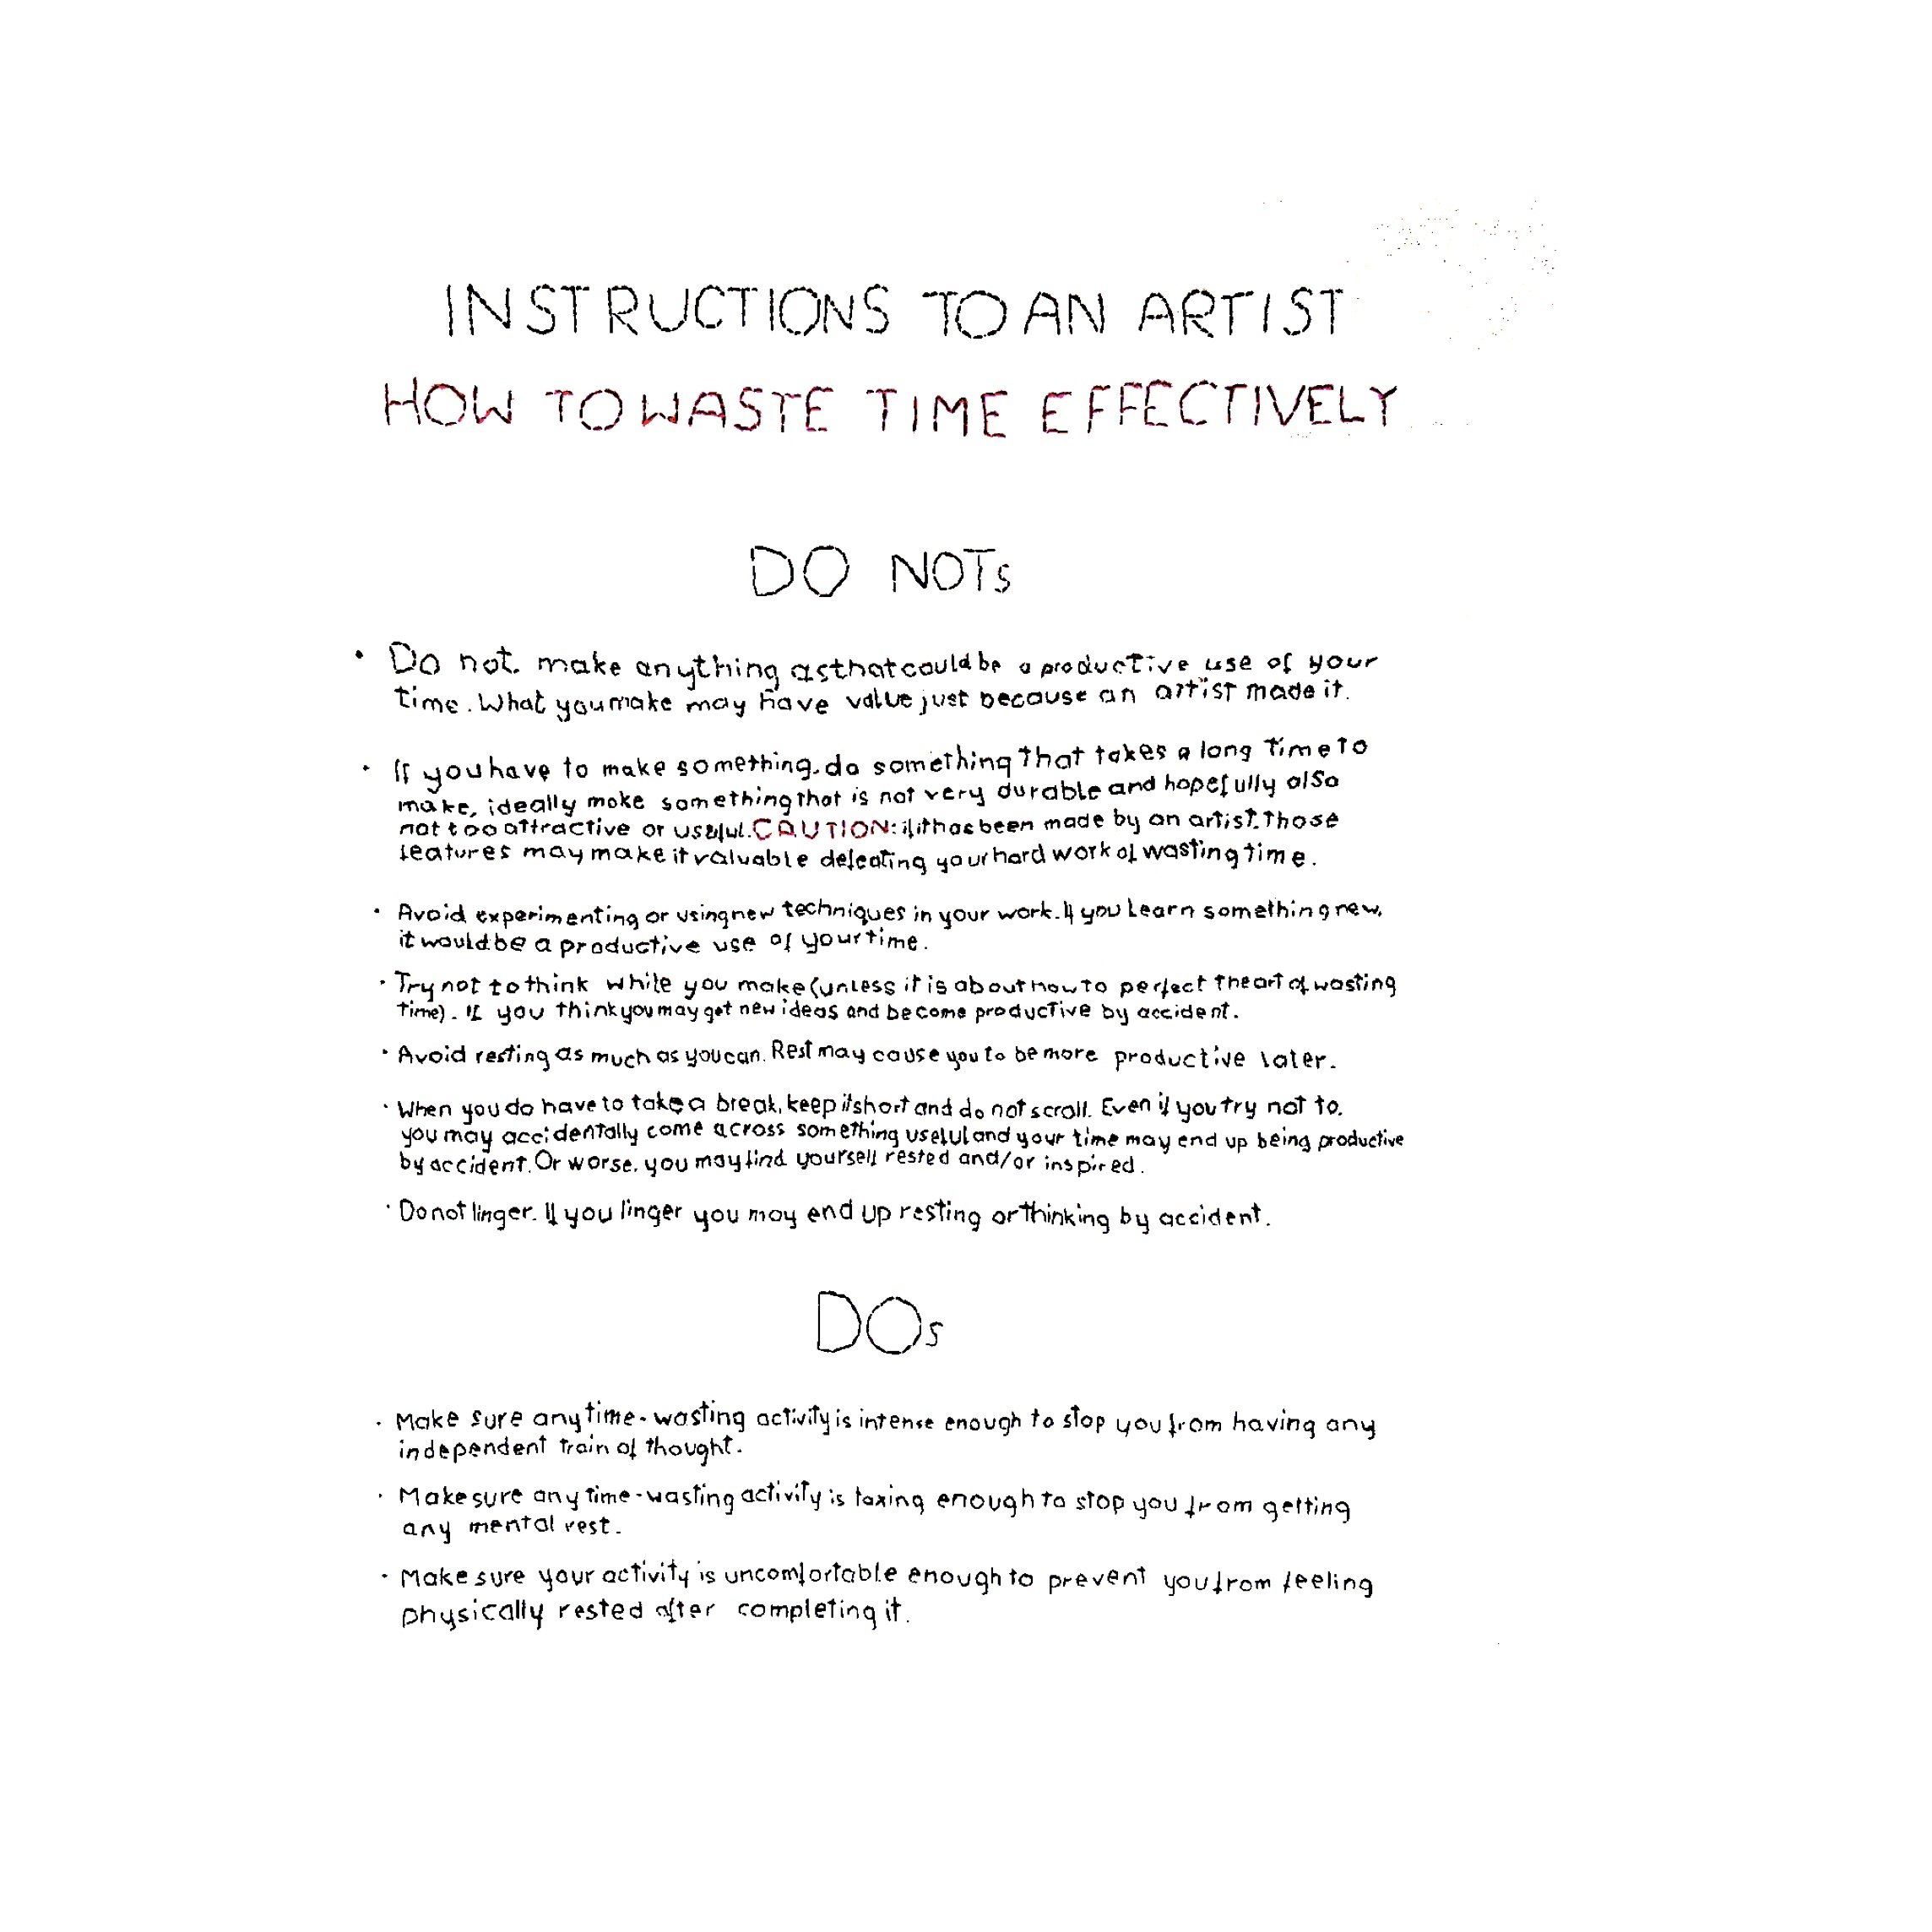 INSTRUCTIONS TO AN ARTIST
HOW TO WASTE TIME EFFECTIVELY
DO NOTs
· Do not make anything as that could be a productive use of your
time. What you make may have value just because an artist made it.
· If you have to make something, do something that takes a long time to
make, ideally make something that is not very durable and hopefully also
not too attractive or useful. CAUTION: if it has been made by an artist, those
features may make it valuable defeating your hard work of wasting time.
· Avoid experimenting or using new techniques in your work. If you learn something new,
it would be a productive use of your time.
· Try not to think while you make (unless it is about how to perfect the art of wasting
time). If you think you may get new ideas and become productive by accident.
· Avoid resting as much as you can. Rest may cause you to be more productive later.
· When you do have to take a break, keep it short and do not scroll. Even if you try not to,
you may accidentally come across something useful and your time may end up being productive
by accident. Or worse, you may find yourself rested and/or inspired.
· Do not linger. If you linger you may end up resting or thinking by accident.
DOs
· Make sure any time-wasting activity is intense enough to stop you from having any
independent train of thought.
· Make sure any time-wasting activity is taxing enough to stop you from getting
any mental rest.
· Make sure your activity is uncomfortable enough to prevent you from feeling
physically rested after completing it.